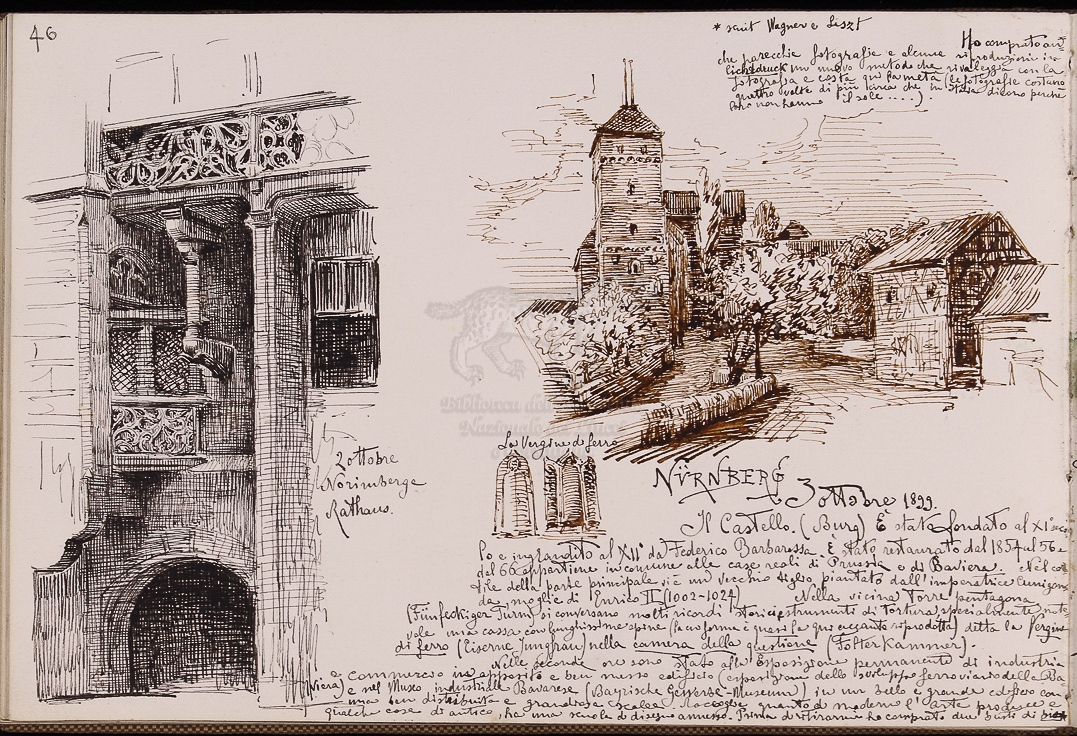 46
* scrit Wagner e Liszt
Ho comprato an-
che parecchie fotografie e alcune riproduzioni in
lichtdruck un nuovo metodo che rivaleggia con la
fotografia e costa qui la metà (le fotografie costano
quattro volte di più circa che in Italia dicono perchè
loro non hanno il sole ....)
La Vergine di ferro
2 ottobre
Norimberga
Rathaus.
NÜRNBERG
3 ottobre 1899.
Il Castello. (Burg) È stato fondato al XI° seco
lo e ingrandito al XII° da Federico Barbarossa. È stato restaurato dal 1854 al 56 e
dal 66 appartiene in comune alle case reali di Prussia e di Baviera. Nel cor
tile della parte principale vi è un vecchio tiglio piantato dall'imperatrice Cunigonda
moglie di Enrico II (1002-1024) Nella vicina Torre pentagona
(Fünfeckiger Turm) si conservano molti ricordi storici, strumenti di tortura, specialmente note
vole una cassa con lunghissime spine (la cui forma è quasi la qui accanto riprodotta) detta la Vergine
di ferro (Eiserne Jungfrau) nella camera della questione (Folterkammer).
Nelle seconde ore sono stato alla Esposizione permanente di industria
e commercio in apposito e ben messo edificio (esposizione dello sviluppo ferroviario della Ba
viera) e nel Museo industriale Bavarese (Bayrische Gewerbe-Museum) in un bello e grande edificio con
una ben distribuita e grandiosa scalea. Raccoglie quanto di moderno l'arte produce e
qualche cosa di antico, ha una scuola di disegno annessa. Prima di ritirarmi ho comprato due busti di
Biblioteca
Nazionale